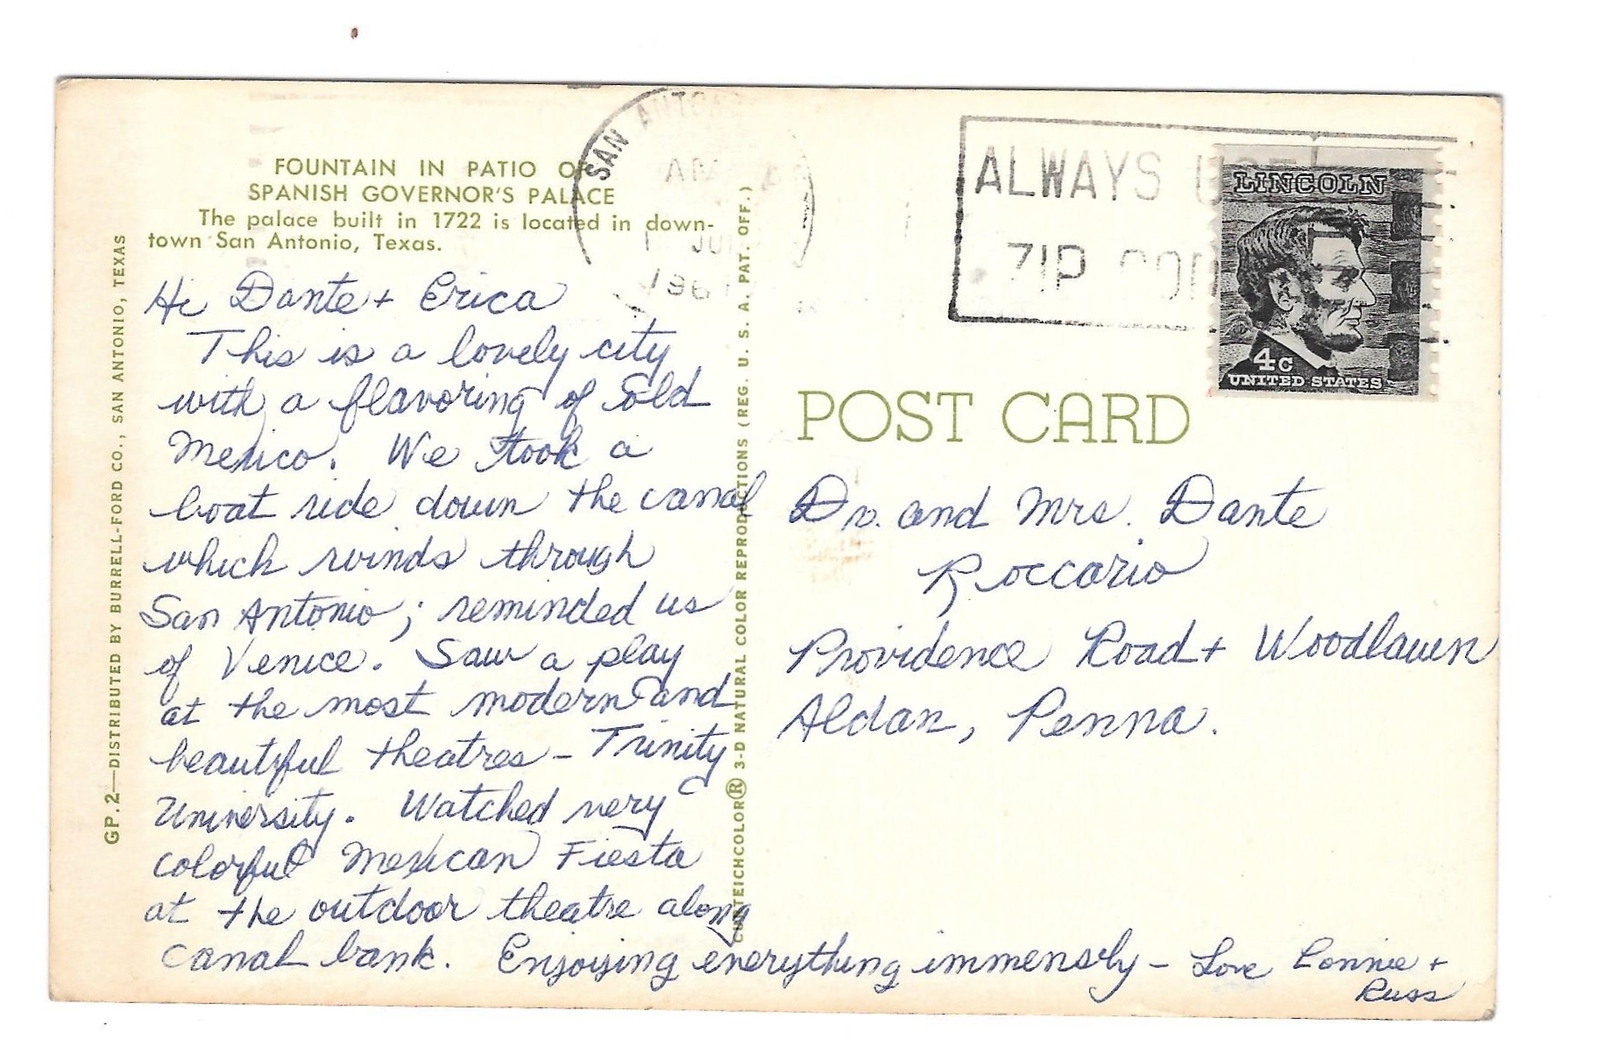 FOUNTAIN IN PATIO OF
SPANISH GOVERNOR'S PALACE
The palace built in 1722 is located in down-
town San Antonio, Texas.
Hi Dante + Erica
This is a lovely city
with a flavoring of old
Mexico. We took a
boat ride down the canal
which winds through
San Antonio; reminded us
of Venice. Saw a play
at the most modern and
beautiful theatres - Trinity
University. Watched very
colorful Mexican Fiesta
at the outdoor theatre along
canal bank. Enjoying everything immensely - Love Connie +
Russ
GP. 2—DISTRIBUTED BY BURRELL-FORD CO., SAN ANTONIO, TEXAS
CURTEICHCOLOR® 3-D NATURAL COLOR REPRODUCTIONS (REG. U. S. A. PAT. OFF.)
SAN ANTONIO
AM
196
ALWAYS USE
ZIP CODE
LINCOLN
4c
UNITED STATES
POST CARD
Dr. and Mrs. Dante
Roccario
Providence Road + Woodlawn
Aldan, Penna.